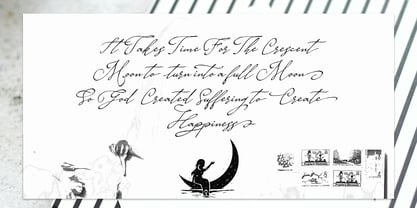 It Takes Time For The Crescent
Moon to turn into a full Moon
So God Created Suffering to Create
Happiness